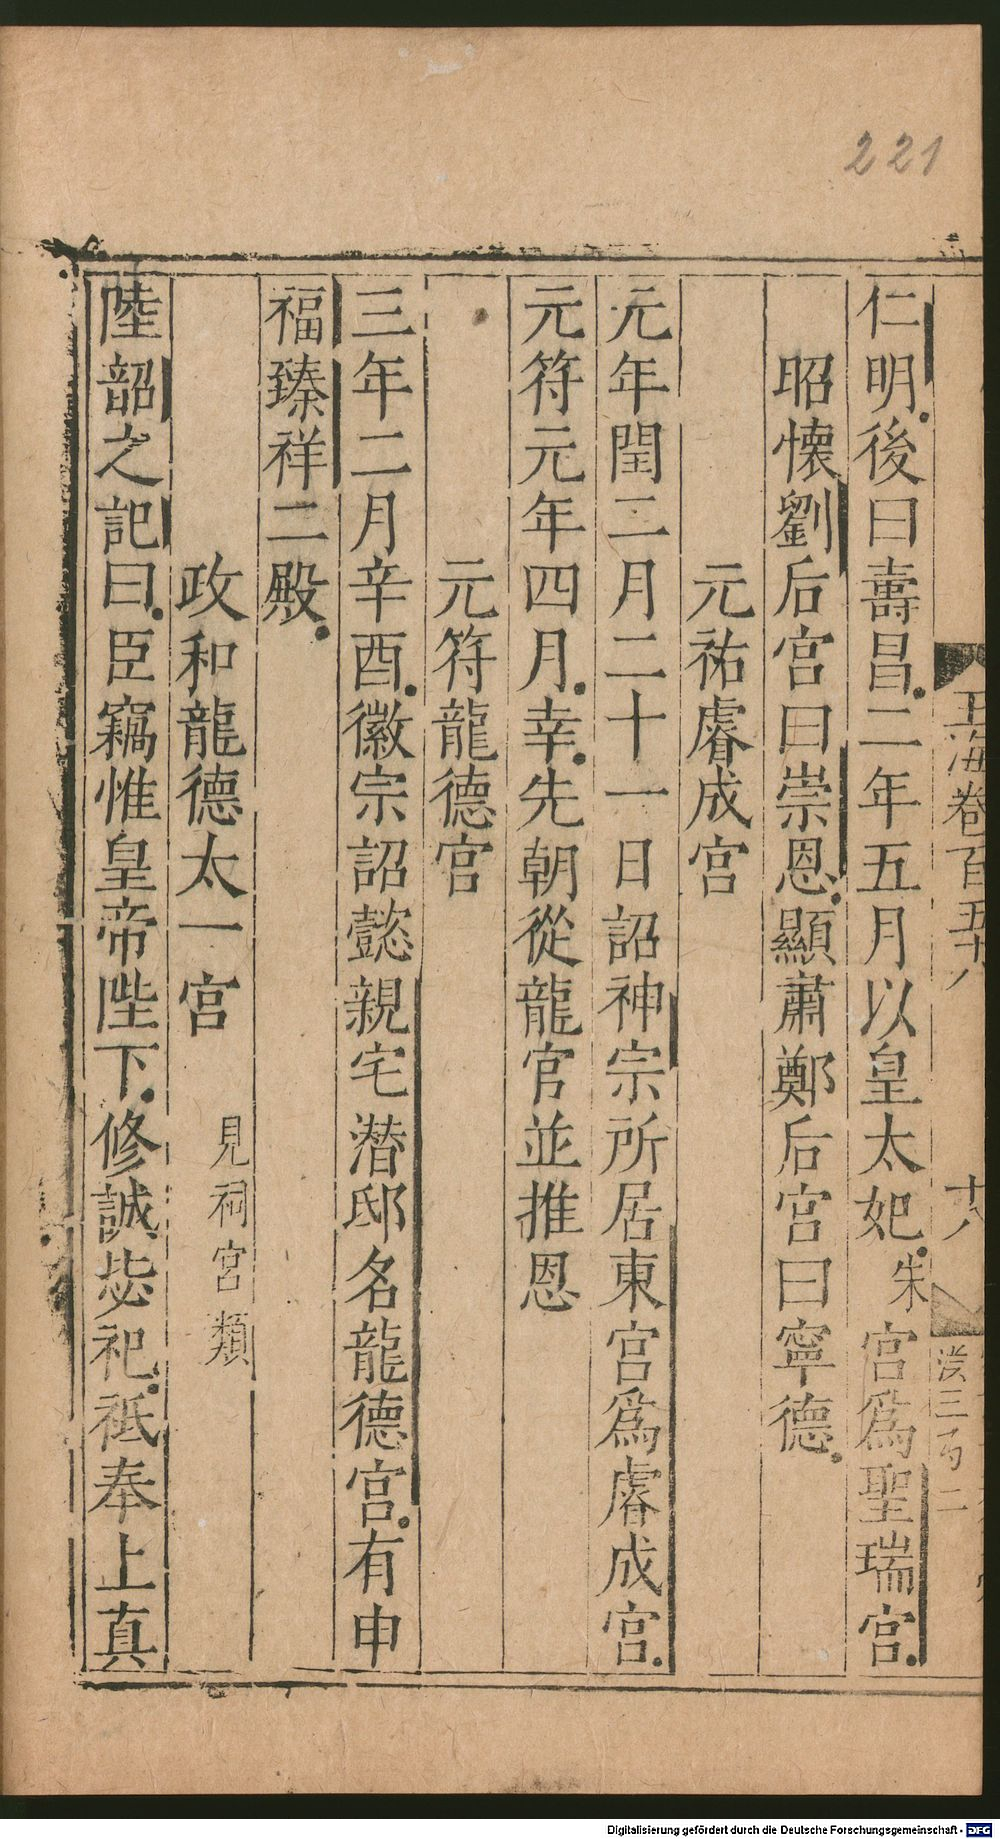 221
玉海卷百五十八
十八
仁明後曰壽昌二年五月以皇太妃朱宮為聖瑞宮
昭懷劉后宮曰崇恩顯肅鄭后宮曰寧德
元祐睿成宮
元年閏二月二十一日詔神宗所居東宮為睿成宮
元符元年四月幸先朝從龍官並推恩
元符龍德宮
三年二月辛酉徽宗詔懿親宅潛邸名龍德宮有申
福臻祥二殿
政和龍德太一宮 見祠宮類
陸韶之記曰臣竊惟皇帝陛下修誠毖祀祗奉上真
Digitalisierung gefördert durch die Deutsche Forschungsgemeinschaft - DFG